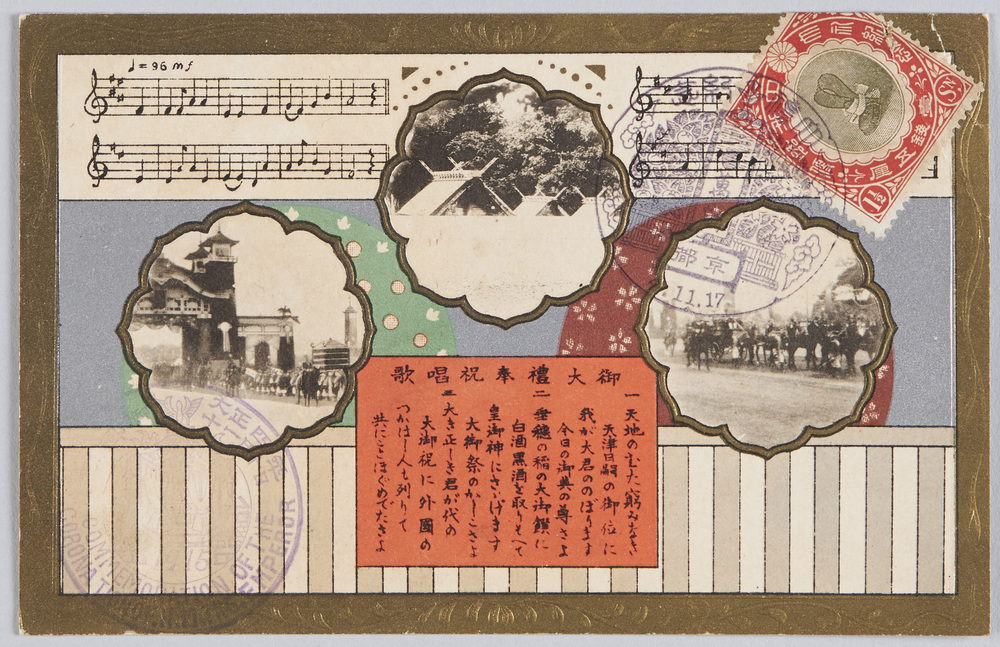 ♩=96 mf
御大禮奉祝唱歌
一 天地のむた窮みなき
天津日嗣の御位に
我が大君ののぼります
今日の御典の尊さよ
二 垂穗の稲の大御饌に
白酒黒酒を取りそへて
皇御神にさゝげます
大御祭のかしこさよ
三 大き正しき君が代の
大御祝に外國の
つかはし人も列りて
共にことほぐめでたさよ
1½
京都
11.17
大正
COMMEMORATION OF THE
EMPEROR